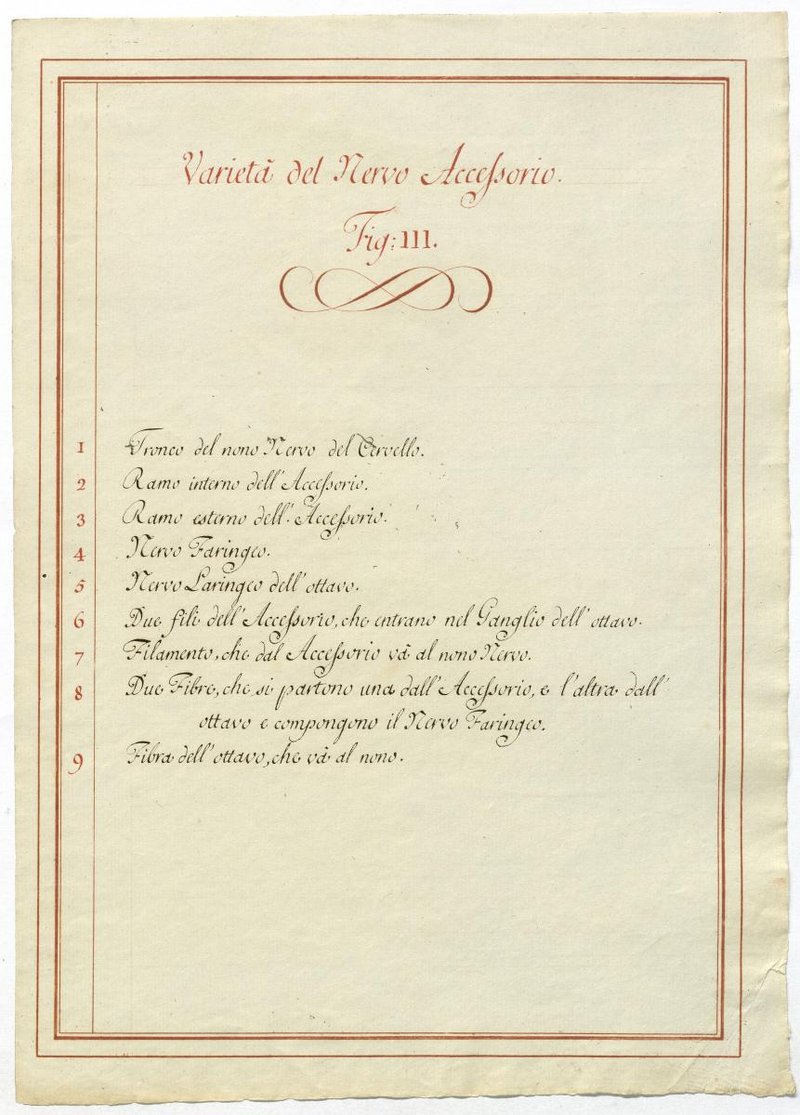 Varietà del Nervo Accessorio.
Fig: III.
1 Tronco del nono Nervo del Cervello.
2 Ramo interno dell' Accessorio.
3 Ramo esterno dell' Accessorio.
4 Nervo Faringeo.
5 Nervo Laringeo dell' ottavo.
6 Due fili dell' Accessorio, che entrano nel Ganglio dell' ottavo.
7 Filamento, che dal Accessorio và al nono Nervo.
8 Due Fibre, che si partono una dall' Accessorio, e l'altra dall'
ottavo e compongono il Nervo Faringeo.
9 Fibra dell' ottavo, che và al nono.